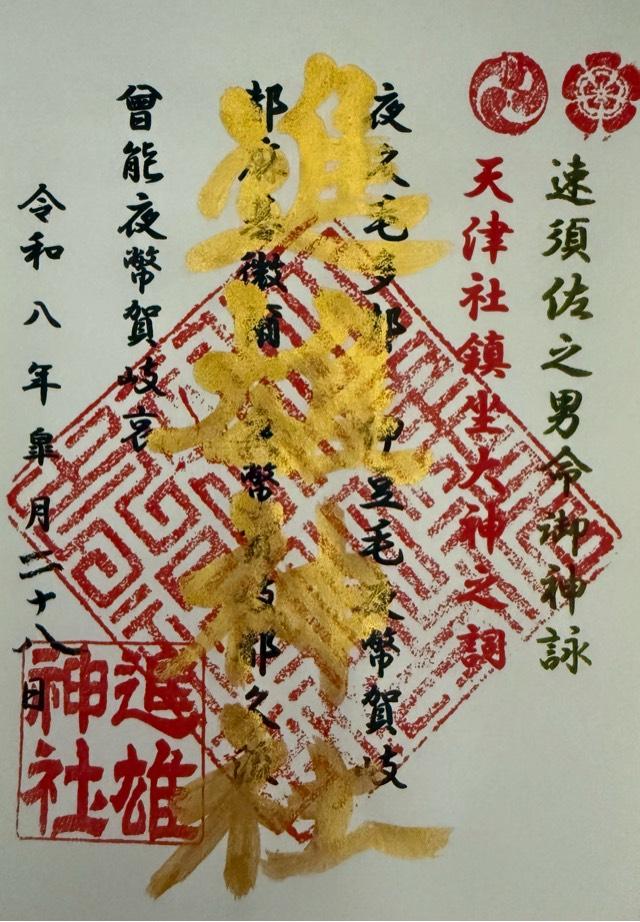 速須佐之男命御神詠
天津社鎮坐大神之詞
夜久毛多都伊豆毛夜幣賀岐
都麻碁微爾夜幣賀岐都久
曾能夜幣賀岐哀
進雄神社
令和八年皐月二十八日
進雄神社